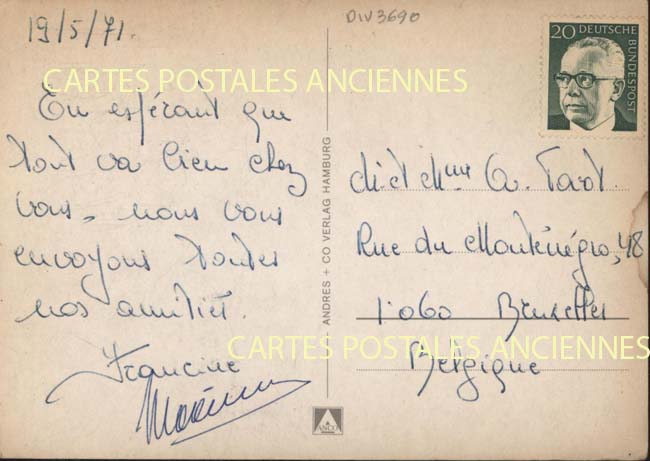 19/5/71.
En espérant que
tout va bien chez
vous, nous vous
envoyons toutes
nos amitiés.
Francine
DIV3690
20 DEUTSCHE
BUNDESPOST
ANDRES + CO VERLAG HAMBURG
A.
Rue du Monténégro, 48
1060 Bruxelles
Belgique
ANCO
CARTES POSTALES ANCIENNES
CARTES POSTALES ANCIENNES